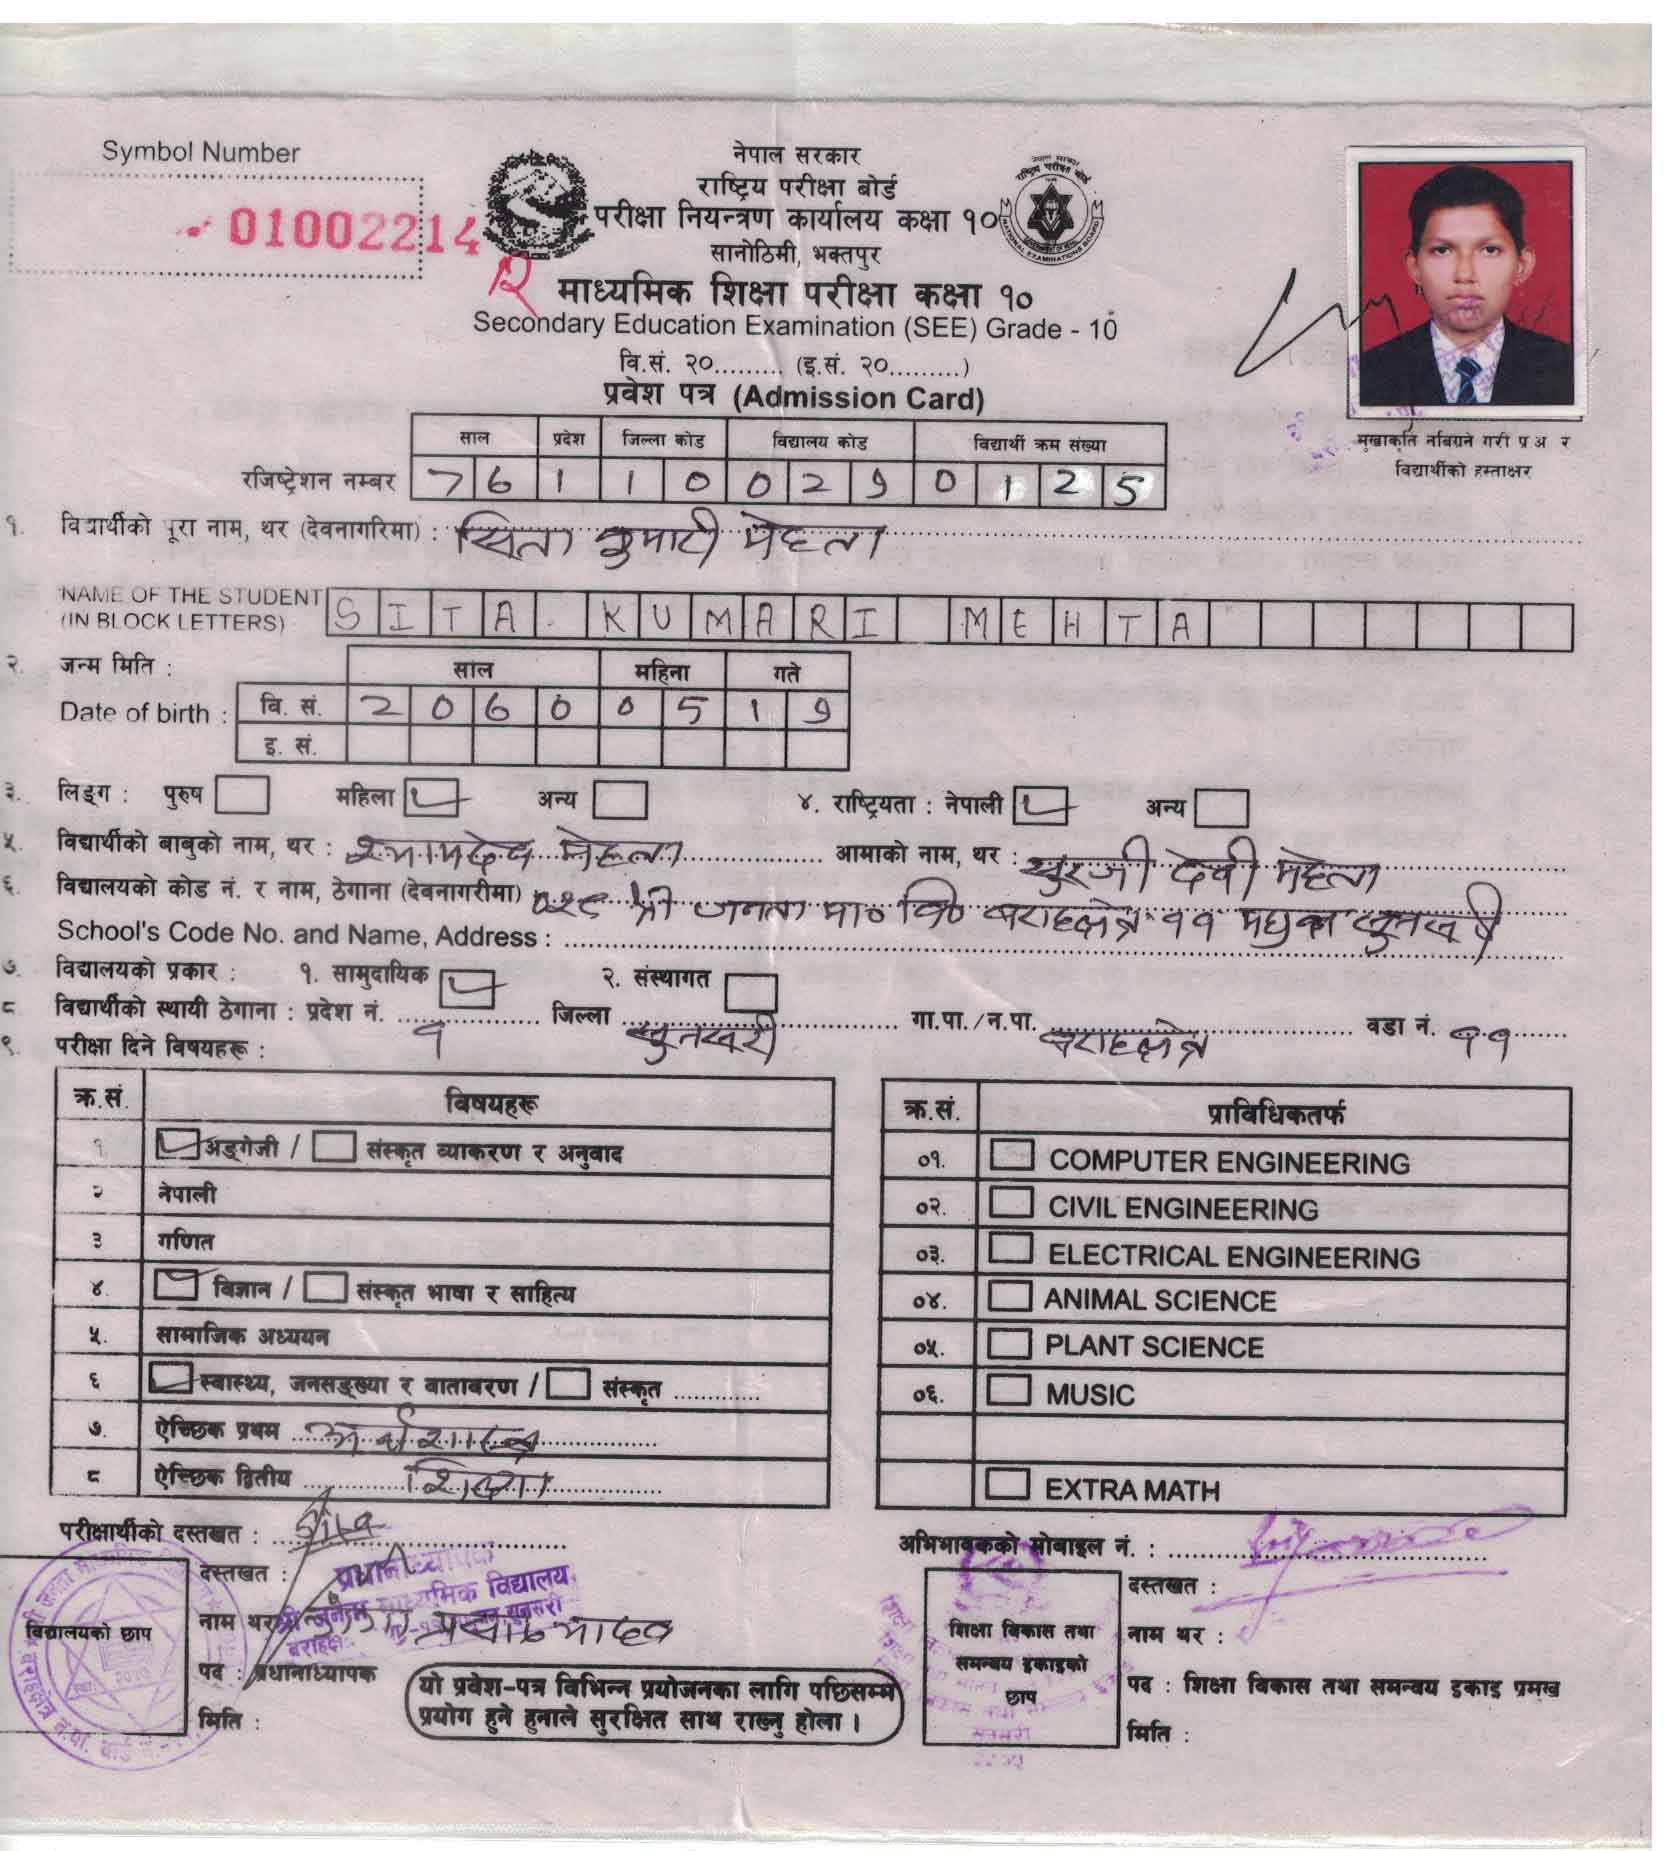 Symbol Number
01002214
नेपाल सरकार
राष्ट्रिय परीक्षा बोर्ड
परीक्षा नियन्त्रण कार्यालय कक्षा १०
सानोठिमी, भक्तपुर
माध्यमिक शिक्षा परीक्षा कक्षा १०
Secondary Education Examination (SEE) Grade - 10
वि.सं. २०......... (इ.सं. २०.........)
प्रवेश पत्र (Admission Card)
मुखाकृति नबिग्रने गरी प्र अ र
विद्यार्थीको हस्ताक्षर
साल प्रदेश जिल्ला कोड विद्यालय कोड विद्यार्थी क्रम संख्या
रजिष्ट्रेशन नम्बर 7 6 1 1 0 0 2 9 0 1 2 5
१. विद्यार्थीको पूरा नाम, थर (देवनागरिमा) : सिता कुमारी मेहता
NAME OF THE STUDENT SITA KUMARI MEHTA
(IN BLOCK LETTERS)
२. जन्म मिति : साल महिना गते
Date of birth : वि. सं. 2 0 6 0 0 5 1 9
इ. सं.
३. लिङ्ग : पुरुष महिला अन्य ४. राष्ट्रियता : नेपाली अन्य
५. विद्यार्थीको बाबुको नाम, थर : श्यामदेव मेहता आमाको नाम, थर : सुरजी देवी मेहता
६. विद्यालयको कोड नं. र नाम, ठेगाना (देवनागरीमा) ०२९ श्री जनता मा० वि० बराहक्षेत्र ११ मधुवन सुनसरी
School's Code No. and Name, Address :
७. विद्यालयको प्रकार : १. सामुदायिक २. संस्थागत
८ विद्यार्थीको स्थायी ठेगाना : प्रदेश नं. १ जिल्ला सुनसरी गा.पा./न.पा. बराहक्षेत्र वडा नं. ११
९. परीक्षा दिने विषयहरू :
क्र.सं. विषयहरू
१ अङ्ग्रेजी / संस्कृत व्याकरण र अनुवाद
२ नेपाली
३ गणित
४. विज्ञान / संस्कृत भाषा र साहित्य
५. सामाजिक अध्ययन
६ स्वास्थ्य, जनसङ्ख्या र वातावरण / संस्कृत ............
७. ऐच्छिक प्रथम अर्थशास्त्र
८ ऐच्छिक द्वितीय शिक्षा
क्र.सं. प्राविधिकतर्फ
०१. COMPUTER ENGINEERING
०२. CIVIL ENGINEERING
०३. ELECTRICAL ENGINEERING
०४. ANIMAL SCIENCE
०५. PLANT SCIENCE
०६. MUSIC
EXTRA MATH
परीक्षार्थीको दस्तखत : Sita
दस्तखत :
प्रधानाध्यापक
माध्यमिक विद्यालय
नाम थर प्रसाद यादव
पद : प्रधानाध्यापक
मिति :
विद्यालयको छाप
यो प्रवेश-पत्र विभिन्न प्रयोजनका लागि पछिसम्म
प्रयोग हुने हुनाले सुरक्षित साथ राख्नु होला ।
अभिभावकको मोबाइल नं. :
शिक्षा विकास तथा
समन्वय इकाइको
छाप
दस्तखत :
नाम थर :
पद : शिक्षा विकास तथा समन्वय इकाइ प्रमुख
मिति :